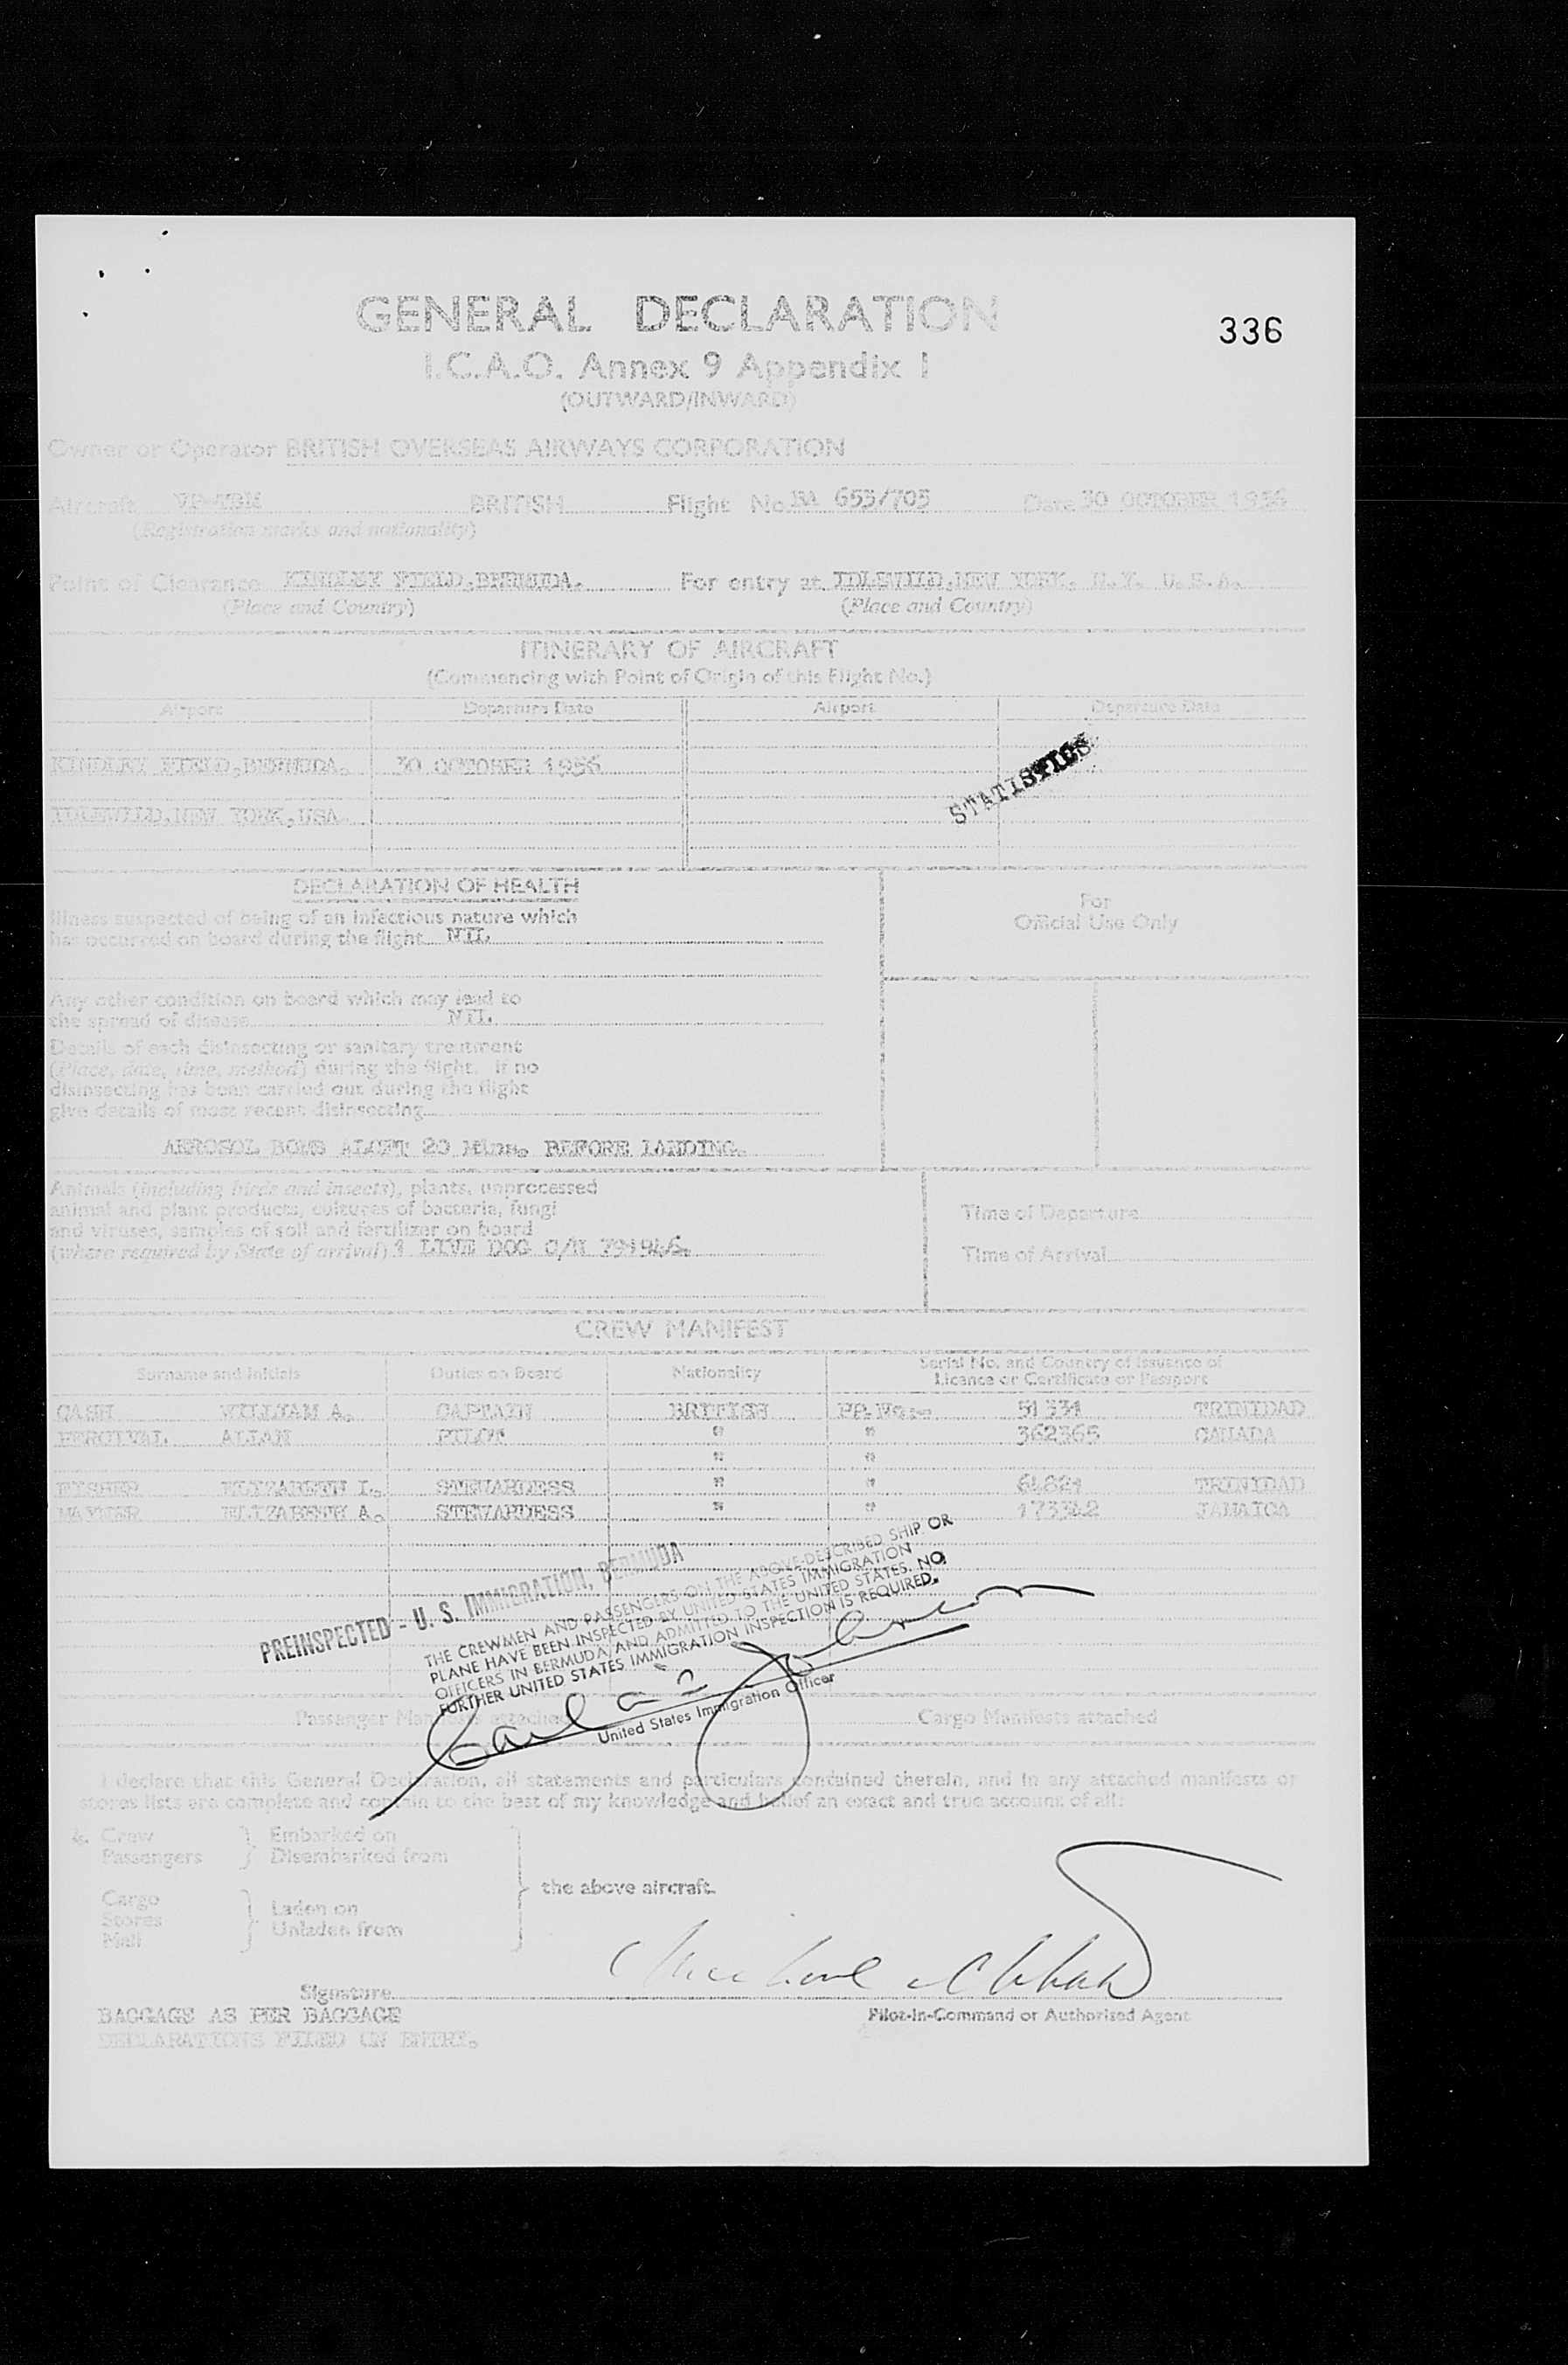 GENERAL DECLARATION
336
I.C.A.O. Annex 9 Appendix 1
(OUTWARD/INWARD)
Owner or Operator BRITISH OVERSEAS AIRWAYS CORPORATION
Aircraft BRITISH Flight No. BA 653/703 Date 30 OCTOBER 1956
(Registration marks and nationality)
Point of Clearance KINDLEY FIELD, BERMUDA. For entry at IDLEWILD, NEW YORK, N.Y. U.S.A.
(Place and Country) (Place and Country)
ITINERARY OF AIRCRAFT
(Commencing with Point of Origin of this Flight No.)
Airport Departure Date Airport Departure Date
KINDLEY FIELD, BERMUDA. 30 OCTOBER 1956
STATISTICS
IDLEWILD, NEW YORK, USA
DECLARATION OF HEALTH
Illness suspected of being of an infectious nature which
has occurred on board during the flight NIL
For
Official Use Only
Any other condition on board which may lead to
the spread of disease NIL
Details of each disinsecting or sanitary treatment
(Place, date, time, method) during the flight. If no
disinsecting has been carried out during the flight
give details of most recent disinsecting
AEROSOL BOMB ALOFT 20 Mins. BEFORE LANDING.
Animals (including birds and insects), plants, unprocessed
animal and plant products, cultures of bacteria, fungi
and viruses, samples of soil and fertilizer on board
(where required by State of arrival) LIVE DOG C/N
Time of Departure
Time of Arrival
CREW MANIFEST
Surname and Initials Duties on Board Nationality Serial No. and Country of Issuance of
Licence or Certificate or Passport
CASH WILLIAM A. CAPTAIN BRITISH PP.No:- 51331 TRINIDAD
PERCIVAL ALLAN PILOT " " 362365 CANADA
" "
FISHER ELIZABETH I. STEWARDESS " " 64821 TRINIDAD
ELIZABETH A. STEWARDESS " " 173342 JAMAICA
PREINSPECTED - U. S. IMMIGRATION, BERMUDA
THE CREWMEN AND PASSENGERS ON THE ABOVE-DESCRIBED SHIP OR
PLANE HAVE BEEN INSPECTED BY UNITED STATES IMMIGRATION
OFFICERS IN BERMUDA AND ADMITTED TO THE UNITED STATES. NO
FURTHER UNITED STATES IMMIGRATION INSPECTION IS REQUIRED.
United States Immigration Officer
Passenger Manifests attached Cargo Manifests attached
I declare that this General Declaration, all statements and particulars contained therein, and in any attached manifests or
stores lists are complete and contain to the best of my knowledge and belief an exact and true account of all:
4. Crew Embarked on
Passengers Disembarked from
the above aircraft.
Cargo Laden on
Stores Unladen from
Mail
Signature
Pilot-in-Command or Authorised Agent
BAGGAGE AS PER BAGGAGE
DECLARATIONS FILED ON ENTRY.